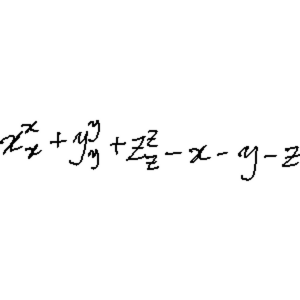 $x_x^x + y_y^y + z_z^z - x - y - z$